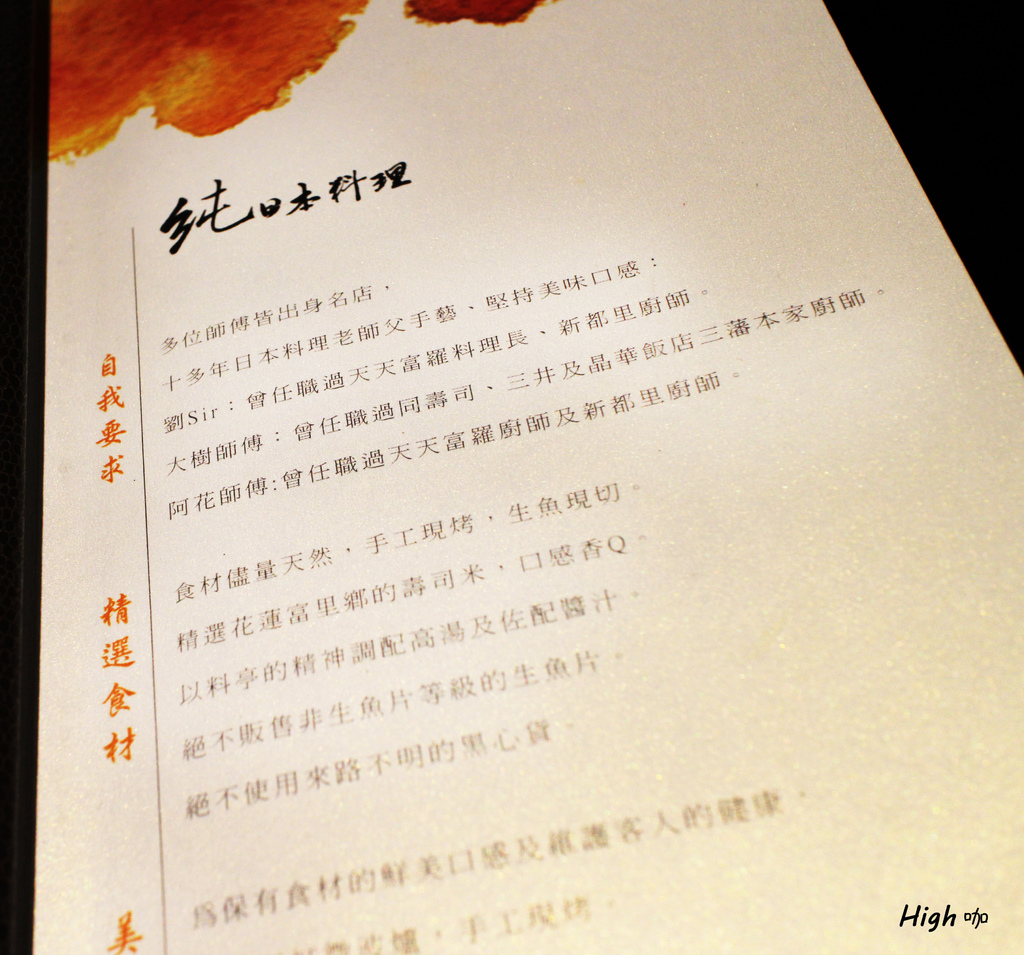 純日本料理
自我要求
多位師傅皆出身名店，
十多年日本料理老師父手藝、堅持美味口感：
劉Sir：曾任職過天天富羅料理長、新都里廚師。
大樹師傅：曾任職過同壽司、三井及晶華飯店三藩本家廚師。
阿花師傅:曾任職過天天富羅廚師及新都里廚師。
精選食材
食材儘量天然，手工現烤，生魚現切。
精選花蓮富里鄉的壽司米，口感香Q。
以料亭的精神調配高湯及佐配醬汁。
絕不販售非生魚片等級的生魚片。
絕不使用來路不明的黑心貨。
美
為保有食材的鮮美口感及維護客人的健康，
微波爐，手工現烤。
High 咖